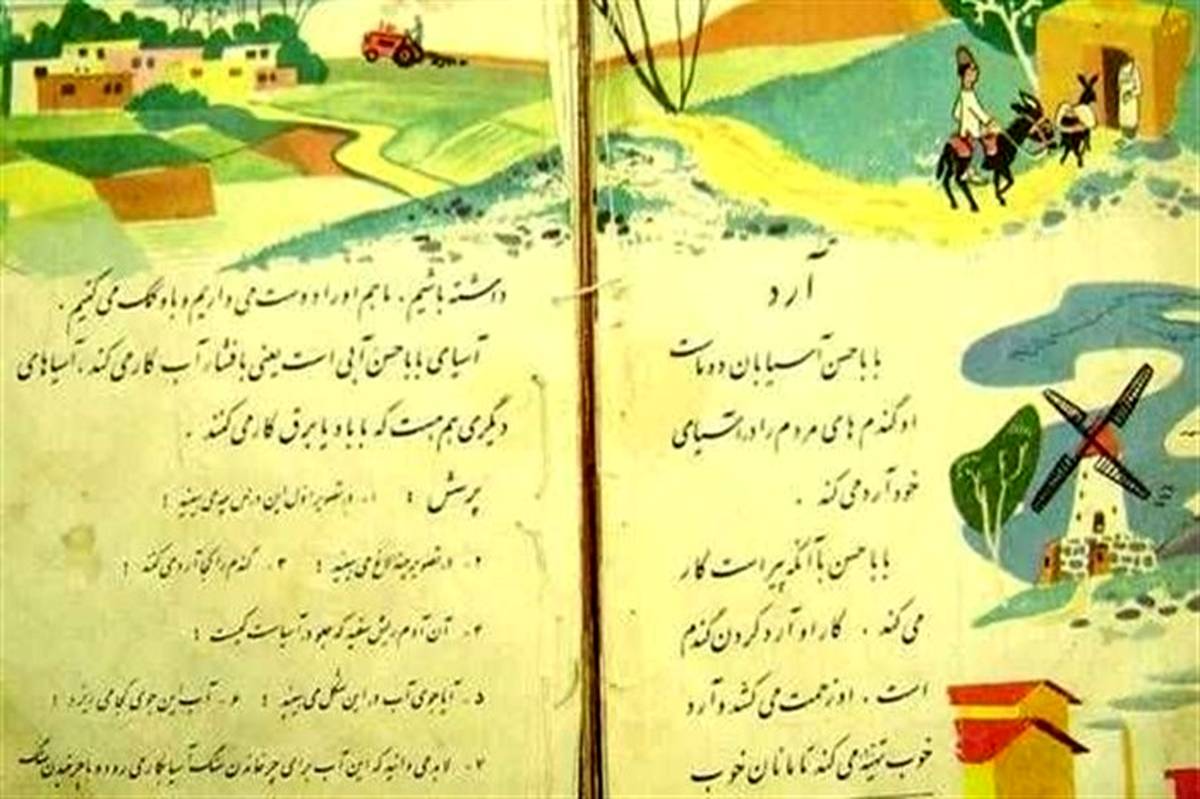 آرد
بابا حسن آسیابان ده ماست
او گندم های مردم را در آسیای
خود آرد می کند .
بابا حسن با آنکه پیر است کار
می کند . کار او آرد کردن گندم
است . او زحمت می کشد و آرد
خوب تهیّه می کند تا ما نان خوب
داشته باشیم . ما هم او را دوست می داریم و با و کمک می کنیم .
آسیای بابا حسن آبی است یعنی با فشار آب کار می کند ، آسیاهای
دیگری هم هست که با باد یا برق کار می کنند .
پرسش : ۱- در تصویر اوّل این درس چه می بینید ؟
۲- در تصویر چند الاغ می بینید ؟ ۳- گندم را کجا آرد می کنند ؟
۴- آن آدم ریش سفید که جلو در آسیاست کیست ؟
۵- آیا جوی آب در این شکل می بینید ؟ ۶- آب این جوی کجا می ریزد ؟
۷- لابد می دانید که این آب برای چرخاندن سنگ آسیا بکار می رود و با چرخیدن سنگ